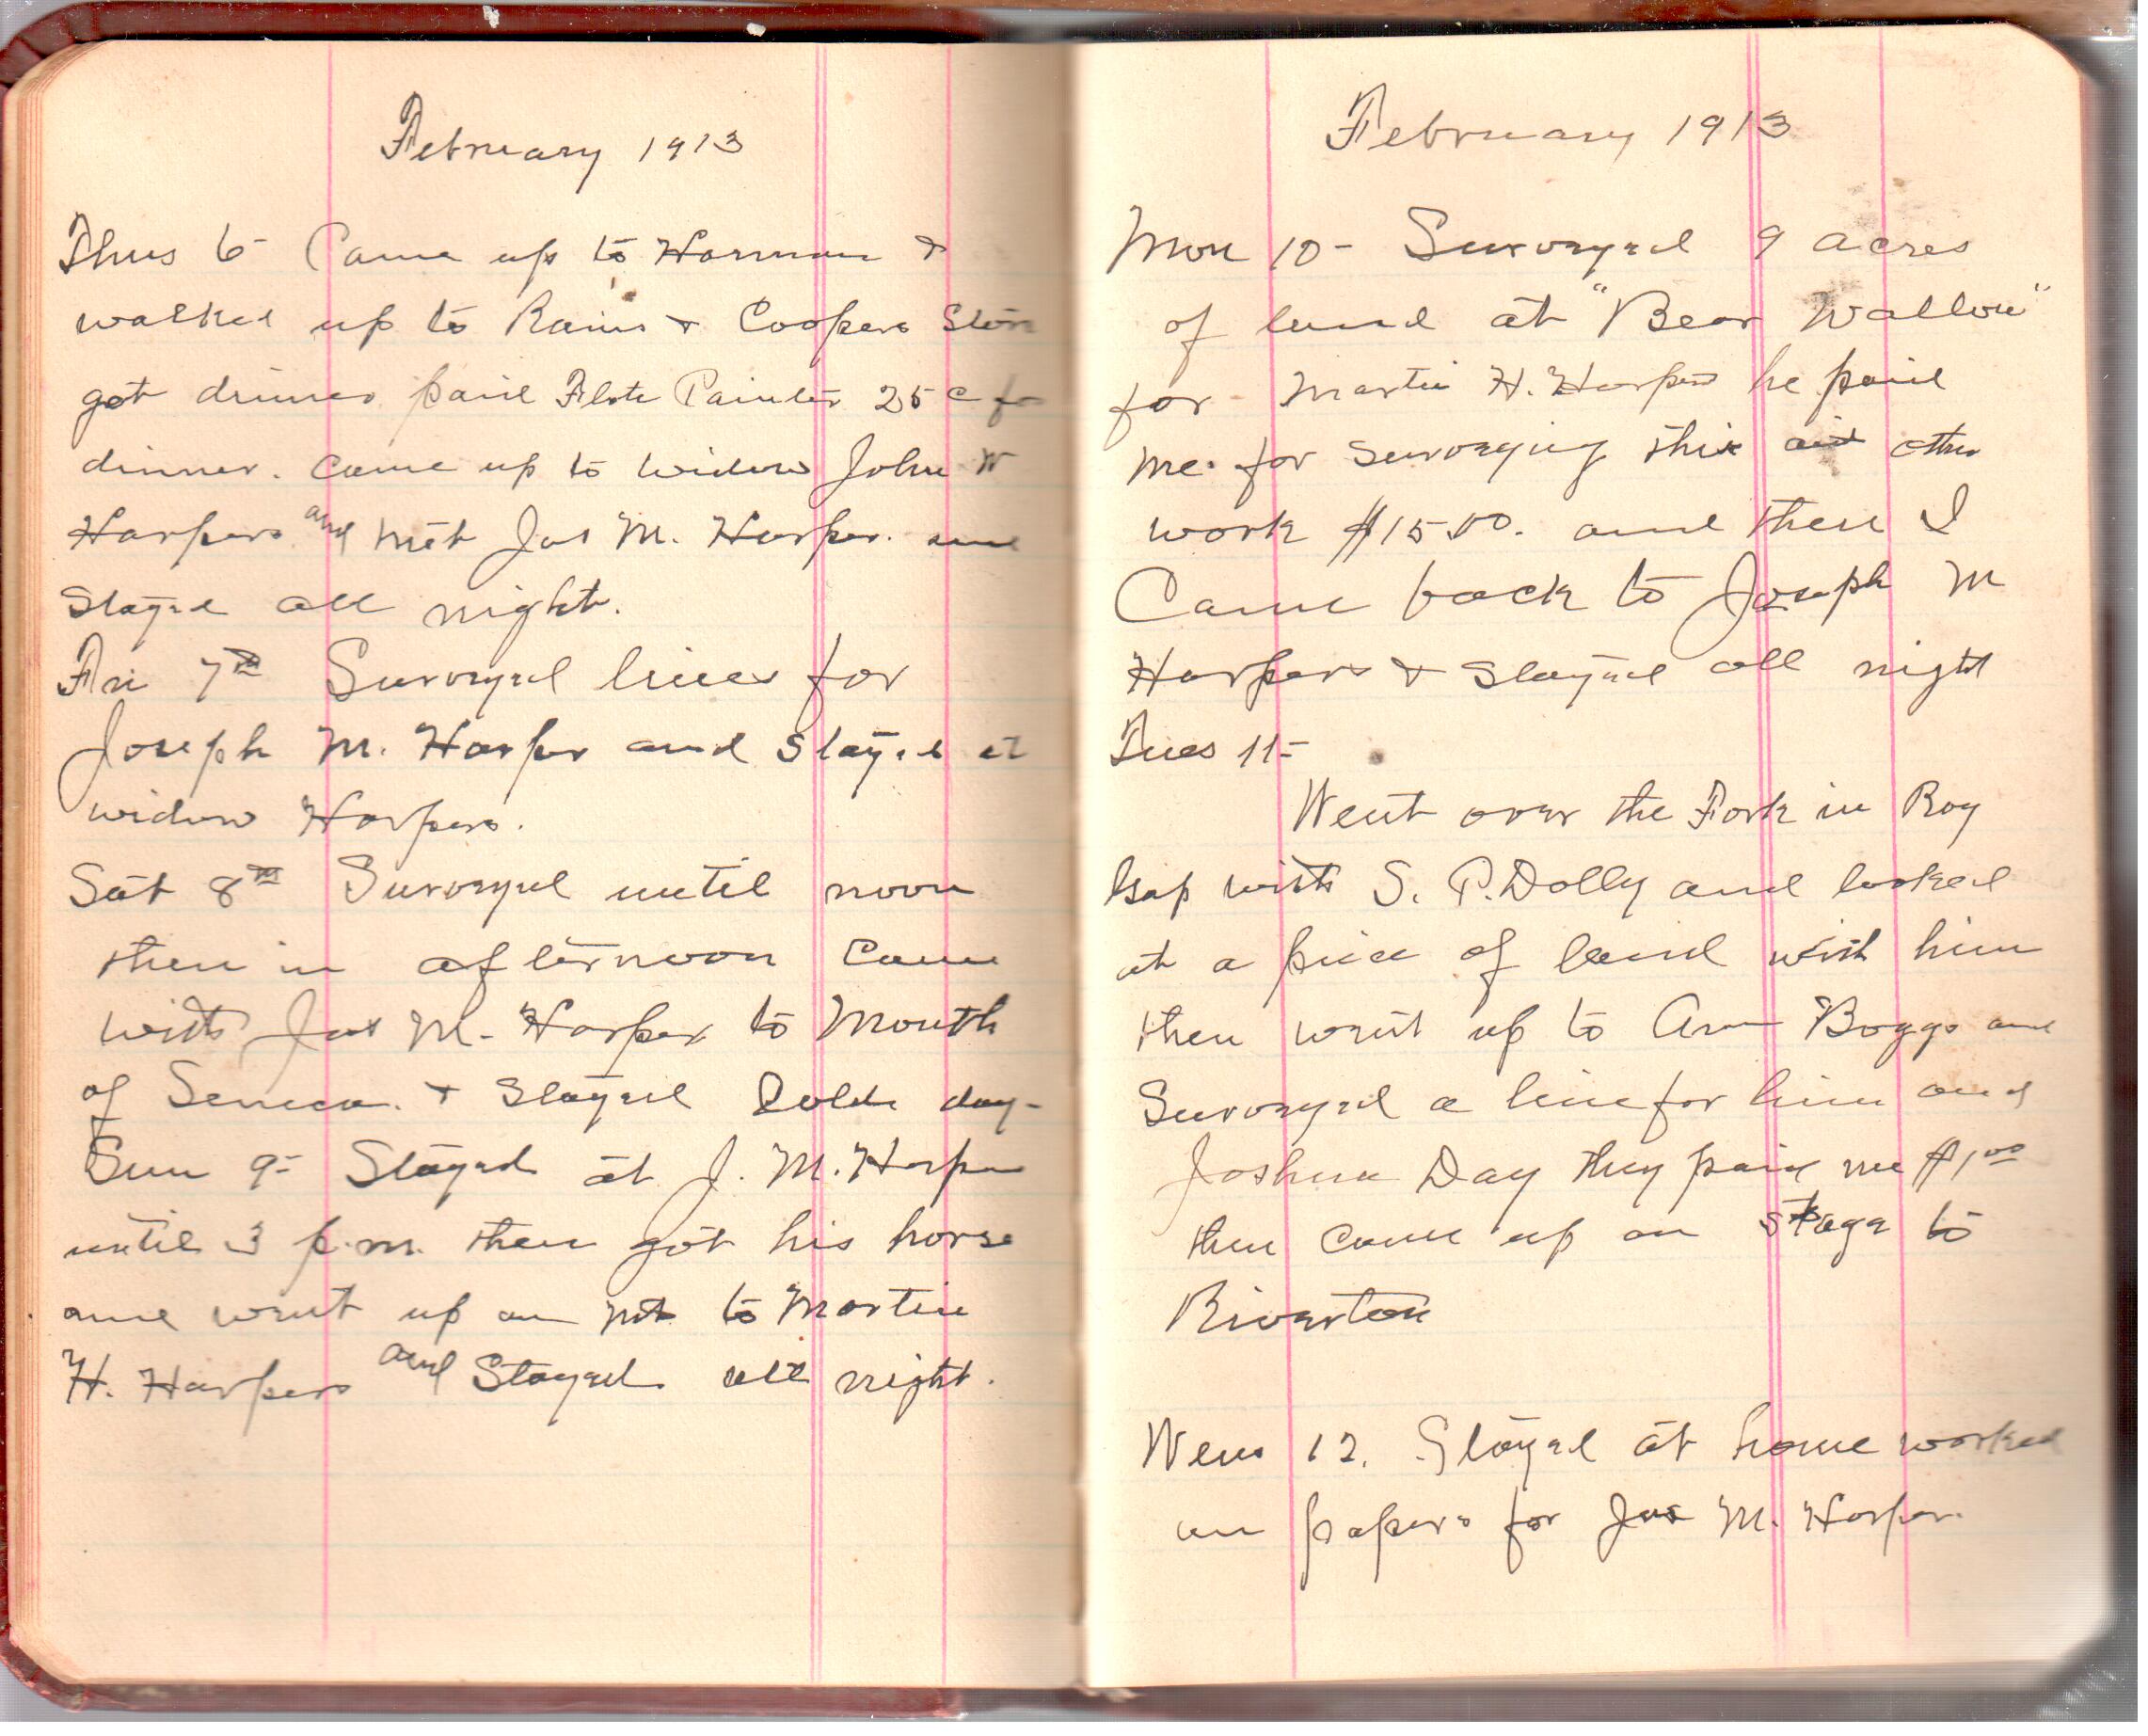 February 1913
Thus 6 - Came up to Harman &
walked up to Rains & Coopers Store
got dinner paid Flote Painter 25 c for
dinner. Came up to widow John W
Harpers and met Jos M. Harper. and
Stayed all night.
Fri 7th Surveyed lines for
Joseph M. Harper and stayed at
widow Harpers.
Sat 8th Surveyed until noon
then in afternoon came
with Jos M. Harper to Mouth
of Seneca. & Stayed day -
Sun 9 - Stayed at J. M. Harper
until 3 p.m. then got his horse
and went up on mt to Martin
H. Harpers and Stayed all night.
February 1913
Mon 10 - Surveyed 9 acres
of land at "Bear Wallow"
for Martin H. Harper he paid
me for surveying this and other
work $15.00. and then I
Came back to Joseph M
Harpers & Stayed all night
Tues 11 -
Went over the Fork in Roy
Gap with S. P. Dolly and looked
at a piece of land with him
then went up to Am Boggs and
Surveyed a line for him and
Joshua Day they paid me $1.00
then came up on stage to
Riverton
Wens 12. Stayed at home worked
on papers for Jos M. Harper.